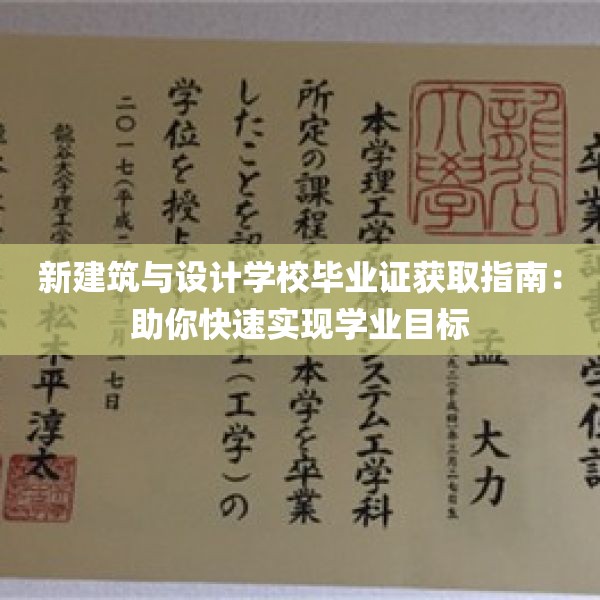 新建筑与设计学校毕业证获取指南：
助你快速实现学业目标
卒業証書
学位記
龍谷大學
孟 大力
本学理工学
システム工学科
所定の課程を
本学を卒業
したことを認
士(工学)の
学位を授与
二〇一七(平成二
年三月一七日
龍谷大学理工学
松木平淳太